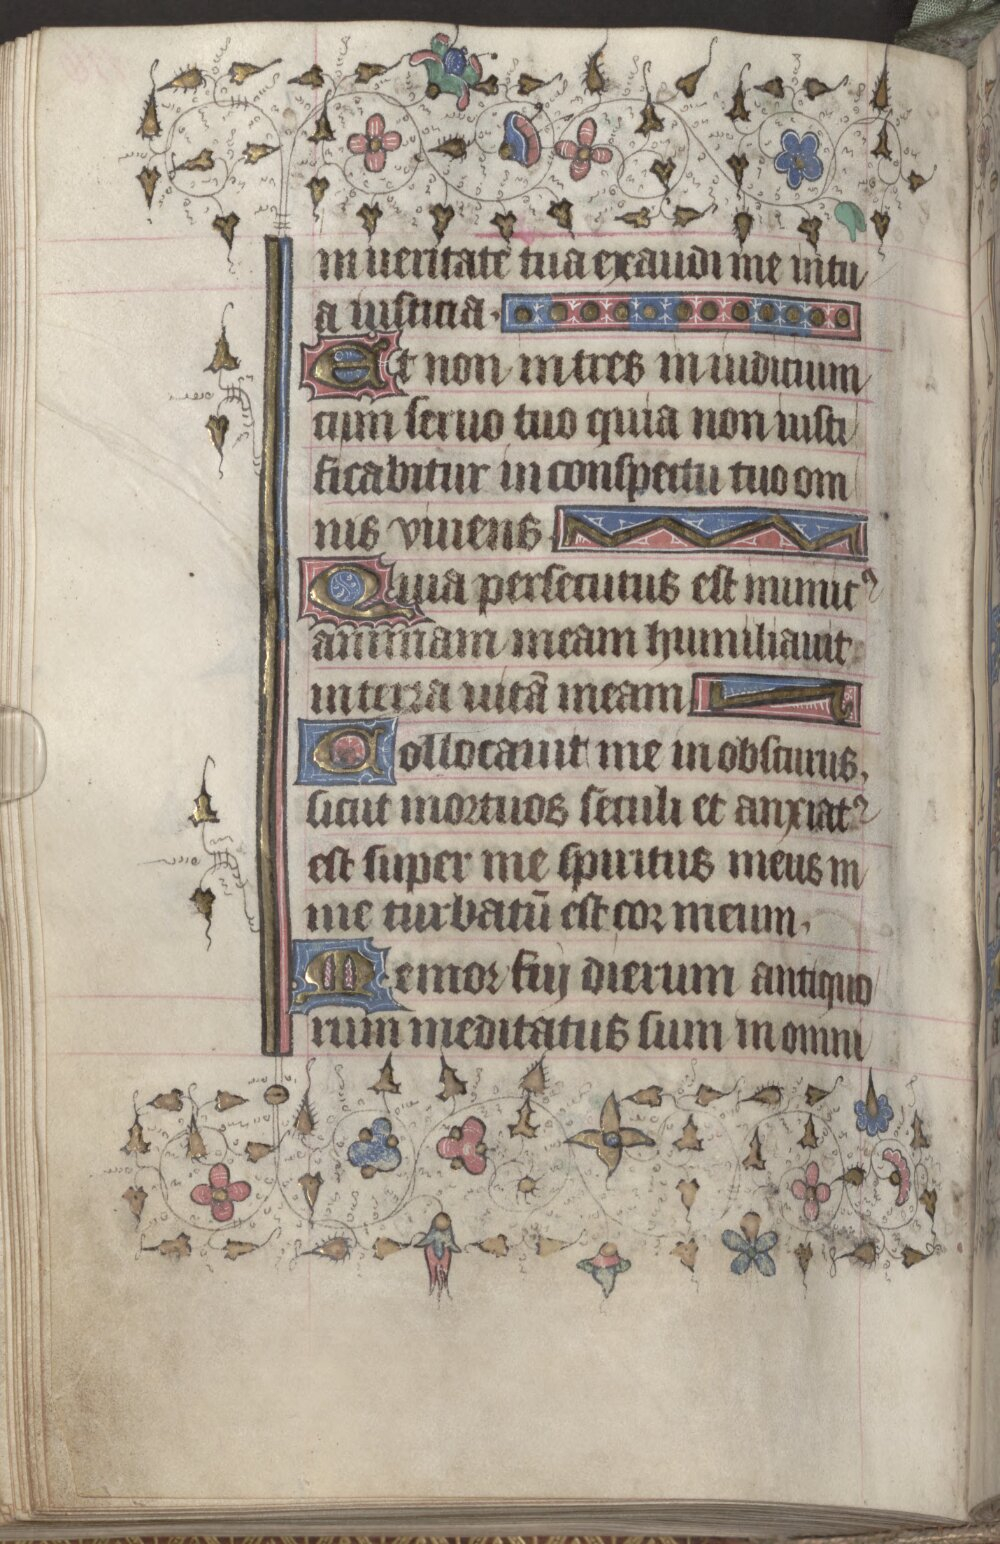 in ueritate tua exaudi me in tu
a iusticia.
Et non intres in iudicium
cum seruo tuo quia non iusti
ficabitur in conspectu tuo om
nis viuens.
Quia persecutus est inimic᷒
animam meam humiliauit
in terra uitā meam
Collocauit me in obscuris,
sicut mortuos sēculi et anxiat᷒
est super me spiritus meus in
me turbatū est cor meum,
Memor fui dierum antiquo
rum meditatus sum in omni